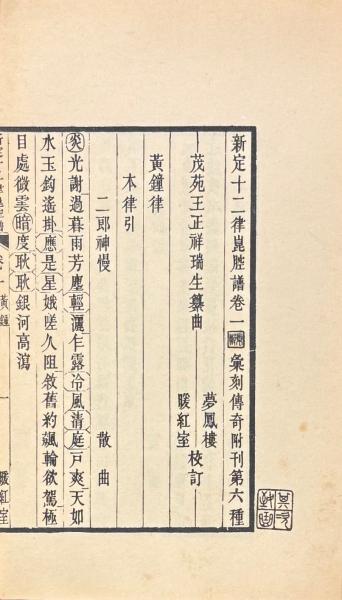 新定十二律崑腔譜卷一 彙刻傳奇附刊第六種
茂苑王正祥瑞生纂曲 夢鳳樓 暖紅室 校訂
黃鐘律
本律引
二郎神慢 散曲
炎光謝過暮雨芳塵輕灑乍露冷風清庭戶爽天如
水玉鈎遙掛應是星娥嗟久阻敘舊約飆輪欲駕極
目處微雲暗度耿耿銀河高瀉
卷一 黃鐘 一 暖紅室